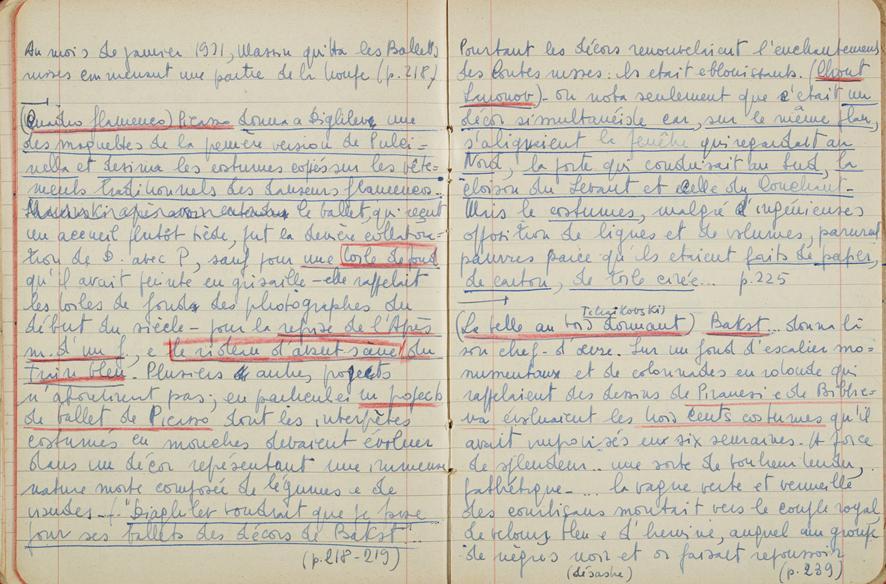 Au mois de janvier 1931, Massin quitta les Ballets
russes emmenant une partie de la troupe (p. 218)
(Quadro flamenco) Picasso donna a Diaghilev une
des maquettes de la première version de Pulci-
nella et dessina les costumes copiés sur les vête-
ments traditionnels des danseurs flamencos.
le ballet, qui reçut
un accueil plutôt tiède, fut la dernière collabora-
tion de D. avec P, sauf pour une toile de fond
qu'il avait peinte en grisaille – elle rappelait
les toiles de fonds des photographes du
début du siècle – pour la reprise de l'Après
m. d'un f, e le rideau d'avant-scène du
Train bleu. Plusiers autres projects
n'aboutirent pas; en particulei un project
de ballet de Picasso dont les interprètes
costumés en mouches devaient évoluer
dans un décor représentant une immense
nature morte composée de légumes e de
viandes – "Diaghilev voudrait que je pose
pour ses ballets des décors de Bakst"
(p. 218-219)
Pourtant les décors renouvelaient l'enchantement
des Contes russes: ils etait eblouissants. (Chout
Larionov) – on nota seulement que c'était un
décor simultanéiste car, sur le même plan,
s'alignaient la fenêtre qui regardait au
Nord, la porte qui conduisait au Sud, la
cloison du Levant et celle du Couchant –
Mais le costumes, malgré d'ingénieuses
opposition de lignes et de volumes, parurent
pauvres parce qu'ils etaient faits de papier,
de carton, de toile cirée... p. 225
Tchaikovski)
(La belle au bois dormant) Bakst... donna là
son chef-d'œvre. Sur un fond d'escalier mo-
numentaux et de colonnades en rotonde qui
rappelaient des dessins de Piranesi e de Bibbie-
na évoluaient les trois cents costumes qu'il
avait improvisés en six semaines. A force
de splendeur... une sorte de bonheur tendu,
pathétique – ... la vague verte et vermeille
des courtisans montait vers le couple royal
de velours bleu e d'hermine, auquel un groupe
de nègres noir et or faisait repoussoir
(désastre) (p. 239)